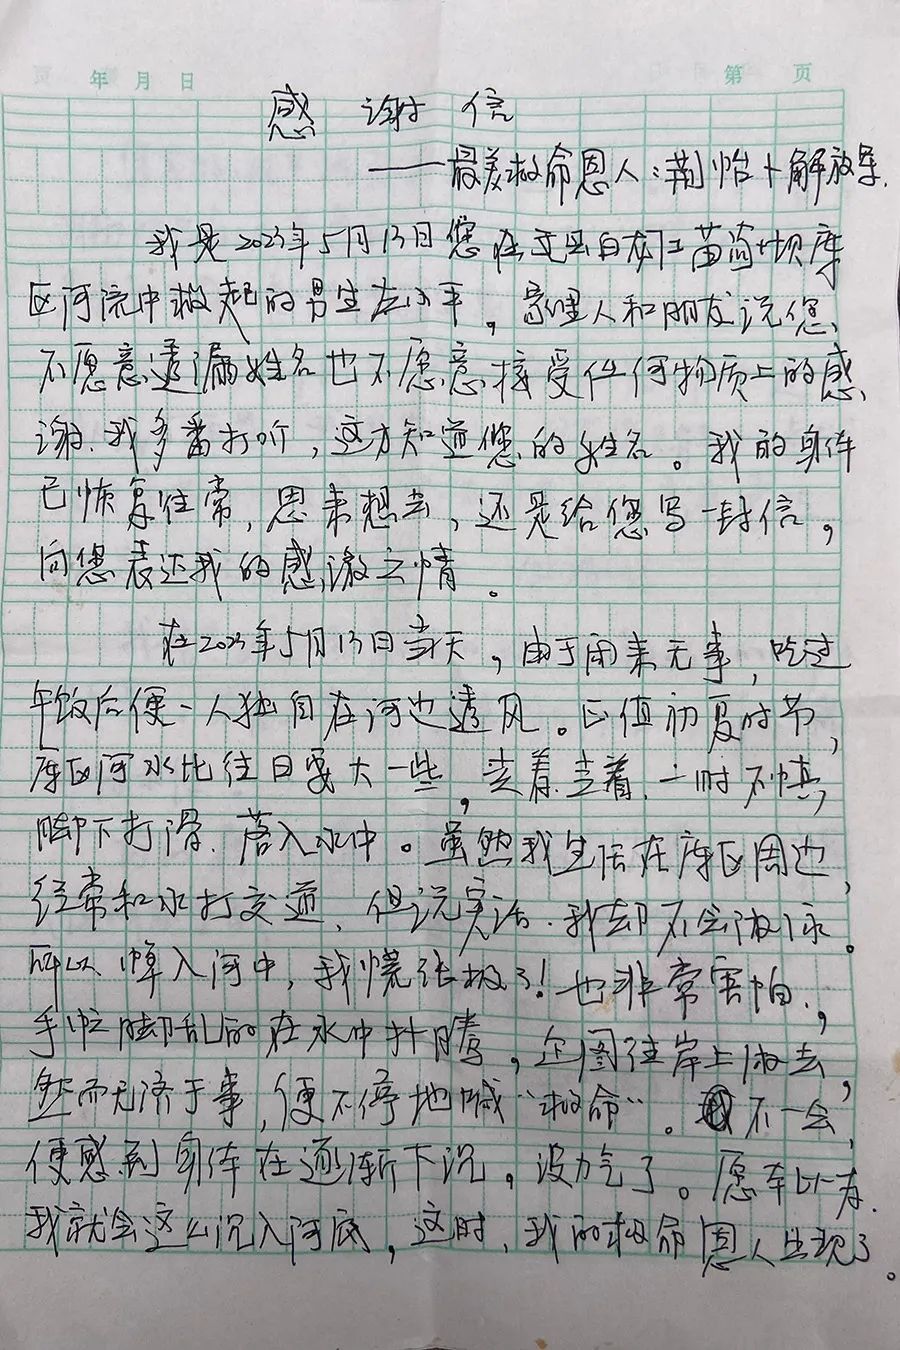 年 月 日
第 页
感谢信
——最美救命恩人:荆怡+解放军.
我是2023年5月13日您在文县白龙江苗
区河流中救起的男生左小平,家里人和朋友说您
不愿意透漏姓名也不愿意接受任何物质上的感
谢.我多番打听,这才知道您的姓名。我的身体
已恢复往常,思来想去,还是给您写一封信,
向您表达我的感激之情。
在2023年5月13日当天,由于闲来无事,吃过
午饭后便一人独自在河边透风。正值初夏时节,
库区河水比往日要大一些,走着走着.一时不慎,
脚下打滑.落入水中。虽然我生活在库区周边,
经常和水打交道,但说实话.我却不会游泳。
所以掉入河中,我慌张极了!也非常害怕.,
手忙脚乱的在水中扑腾,企图往岸上游去,
然而无济于事,便不停地喊“救命”。不一会,
便感到身体在逐渐下沉。没力气了。愿本以为.
我就会这么沉入河底,这时,我的救命恩人出现了。